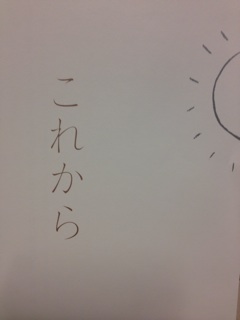 これから